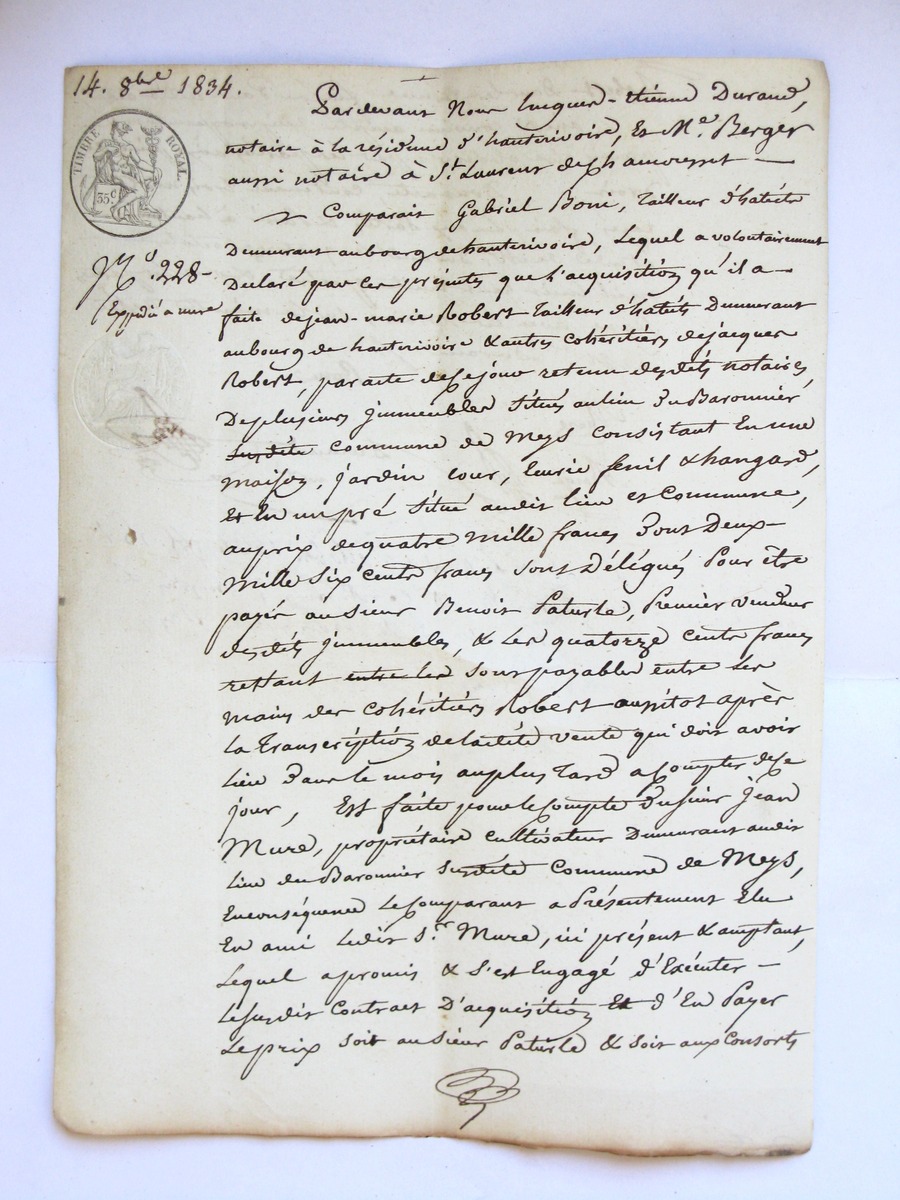 14. 8bre 1834.
TIMBRE ROYAL.
35c
No. 228-
Expédié a mure
Pardevant Nous hugues-étienne Durand,
notaire à la résidence d'hauterivoire, et Me. Berger
aussi notaire à St. Laurent de Chamousset —
Comparait Gabriel Boni, Tailleur d'habits
Demeurant au bourg de hauterivoire, Lequel a volontairement
Déclaré par ces présentes que L'acquisition qu'il a —
faite de jean-marie Robert Tailleur d'habits Demeurant
au bourg de hauterivoire & autres cohéritiers de jacques
Robert, par acte de ce jour retenu desdits notaires,
De plusieurs jmmeubles Situés au lieu Du Baronnier
susdite commune de Meys consistant En une
maison, jardin cour, Ecurie fenil & hangard,
Et En un pré Situé audit lieu et Commune,
au prix de quatre mille francs Dont Deux-
mille Six cents francs sont Délégués Pour être
payés au Sieur Benoit Paturle, Premier vendeur
desdits jmmeubles, & Les quatorze cents francs
restant entre les sont payables entre Les
mains des Cohéritiers Robert aussitot après
La Transcription de ladite vente qui doit avoir
Lieu Dans le mois au plus Tard a Compter de ce
jour, Est faite pour le Compte Du Sieur Jean
Mure, propriétaire Cultivateur Demeurant audit
Lieu du Baronnier Susdite Commune de Meys,
En conséquence Le Comparant a Présentement Elu
En ami Ledit Sr. Mure, ici présent & acceptant,
Lequel a promis & S'est Engagé d'Exécuter —
Le susdit Contract D'acquisition Et d'En Payer
Le prix soit au Sieur Paturle & soit aux Consorts